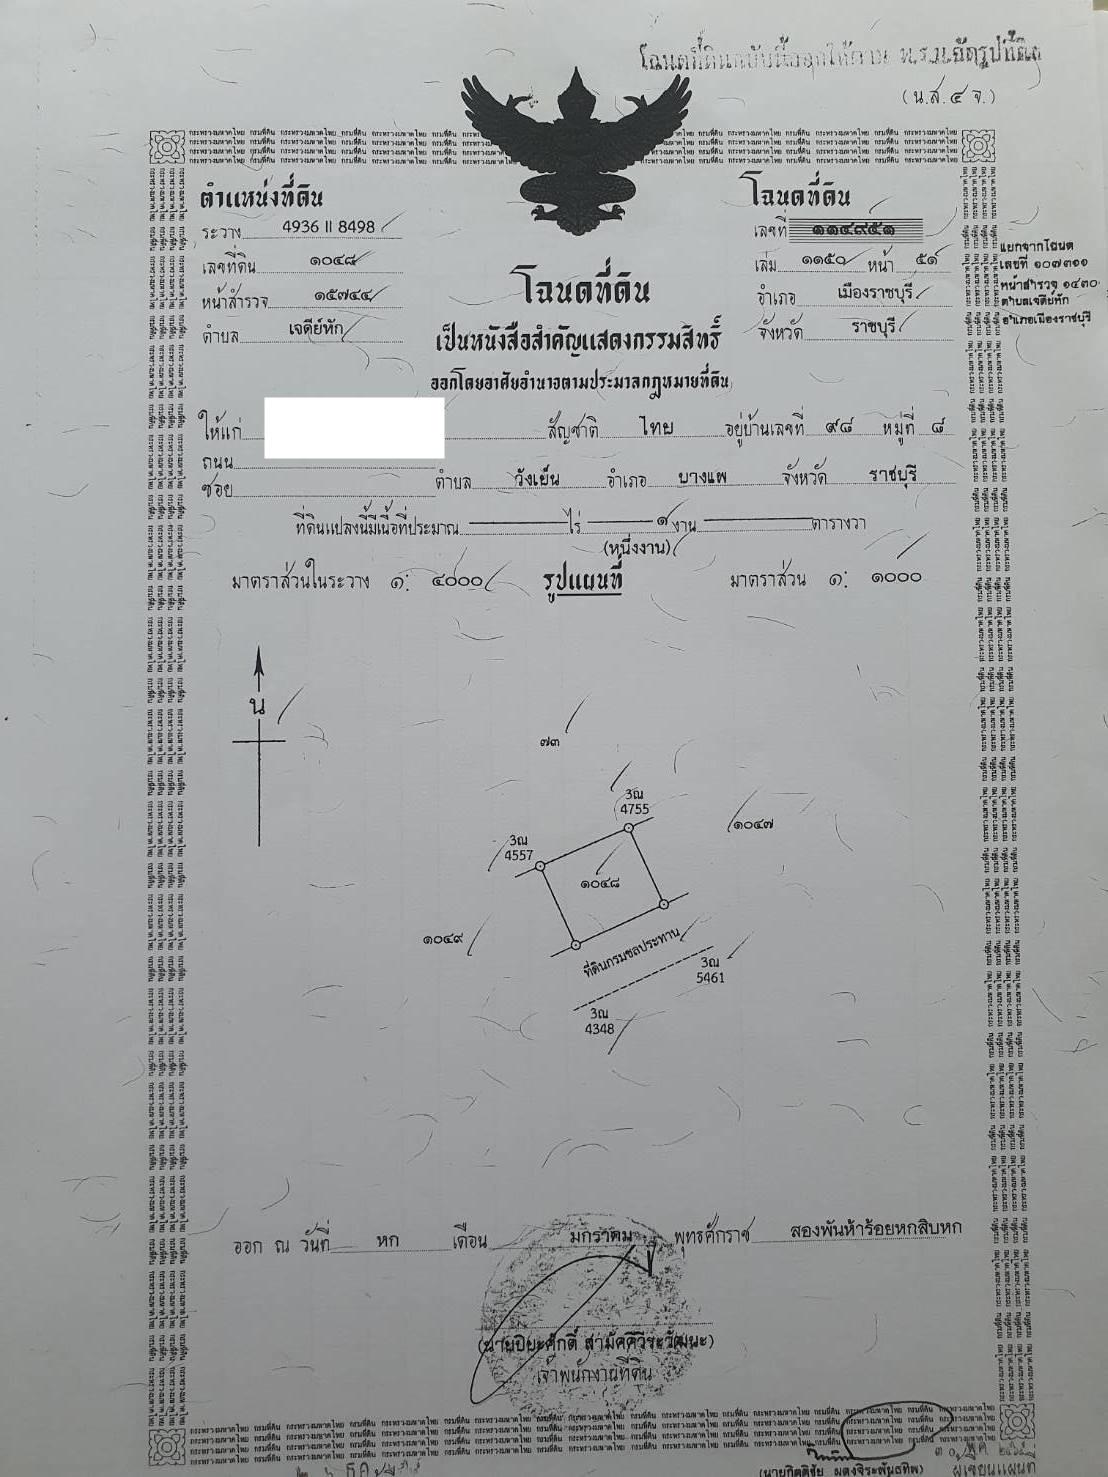 โฉนดที่ดินฉบับนี้ออกให้ตาม พ.ร.บ.จัดรูปที่ดิน
(น.ส.๔ จ.)
ตำแหน่งที่ดิน
ระวาง 4936 II 8498
เลขที่ดิน ๑๐๔๘
หน้าสำรวจ ๑๕๗๔๔
ตำบล เจดีย์หัก
โฉนดที่ดิน
เลขที่ ๑๑๔๙๕๑
เล่ม ๑๑๕๐ หน้า ๕๑
อำเภอ เมืองราชบุรี
จังหวัด ราชบุรี
แยกจากโฉนด
เลขที่ ๑๐๗๓๑๑
หน้าสำรวจ ๑๔๓๐
ตำบลเจดีย์หัก
อำเภอเมืองราชบุรี
โฉนดที่ดิน
เป็นหนังสือสำคัญแสดงกรรมสิทธิ์
ออกโดยอาศัยอำนาจตามประมวลกฎหมายที่ดิน
ให้แก่ สัญชาติ ไทย อยู่บ้านเลขที่ ๙๘ หมู่ที่ ๘
ถนน
ซอย ตำบล วังเย็น อำเภอ บางแพ จังหวัด ราชบุรี
ที่ดินแปลงนี้มีเนื้อที่ประมาณ ไร่ ๑ งาน ตารางวา
(หนึ่งงาน)
มาตราส่วนในระวาง ๑: ๔๐๐๐ รูปแผนที่ มาตราส่วน ๑: ๑๐๐๐
น
๗๓
3ณ
4755
๑๐๔๗
3ณ
4557
๑๐๔๘
๑๐๔๙
ที่ดินกรมชลประทาน
3ณ
5461
3ณ
4348
ออก ณ วันที่ หก เดือน มกราคม พุทธศักราช สองพันห้าร้อยหกสิบหก
(นายปิยะศักดิ์ สามัคคีวีระวัฒนะ)
เจ้าพนักงานที่ดิน
กระทรวงมหาดไทย กรมที่ดิน
ผู้เขียนแผนที่